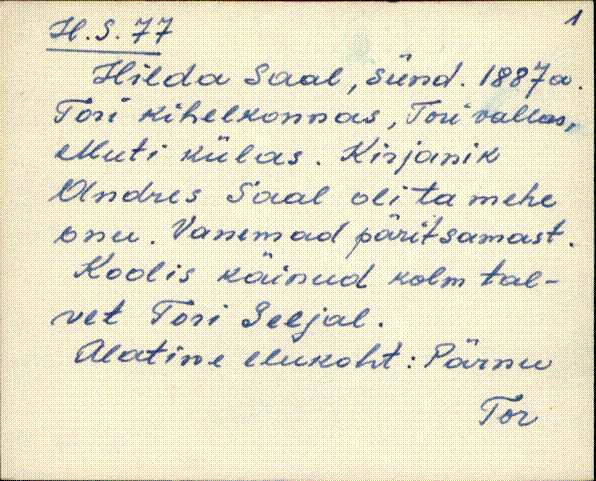 1
H.S. 77
Hilda Saal, sünd. 1887 a.
Tori kihelkonnas, Tori vallas,
Muti külas. Kirjanik
Andres Saal oli ta mehe
onu. Vanemad päritsamast.
Koolis käinud kolm tal-
vet Tori Seljal.
Alatine elukoht: Pärnu
Tor